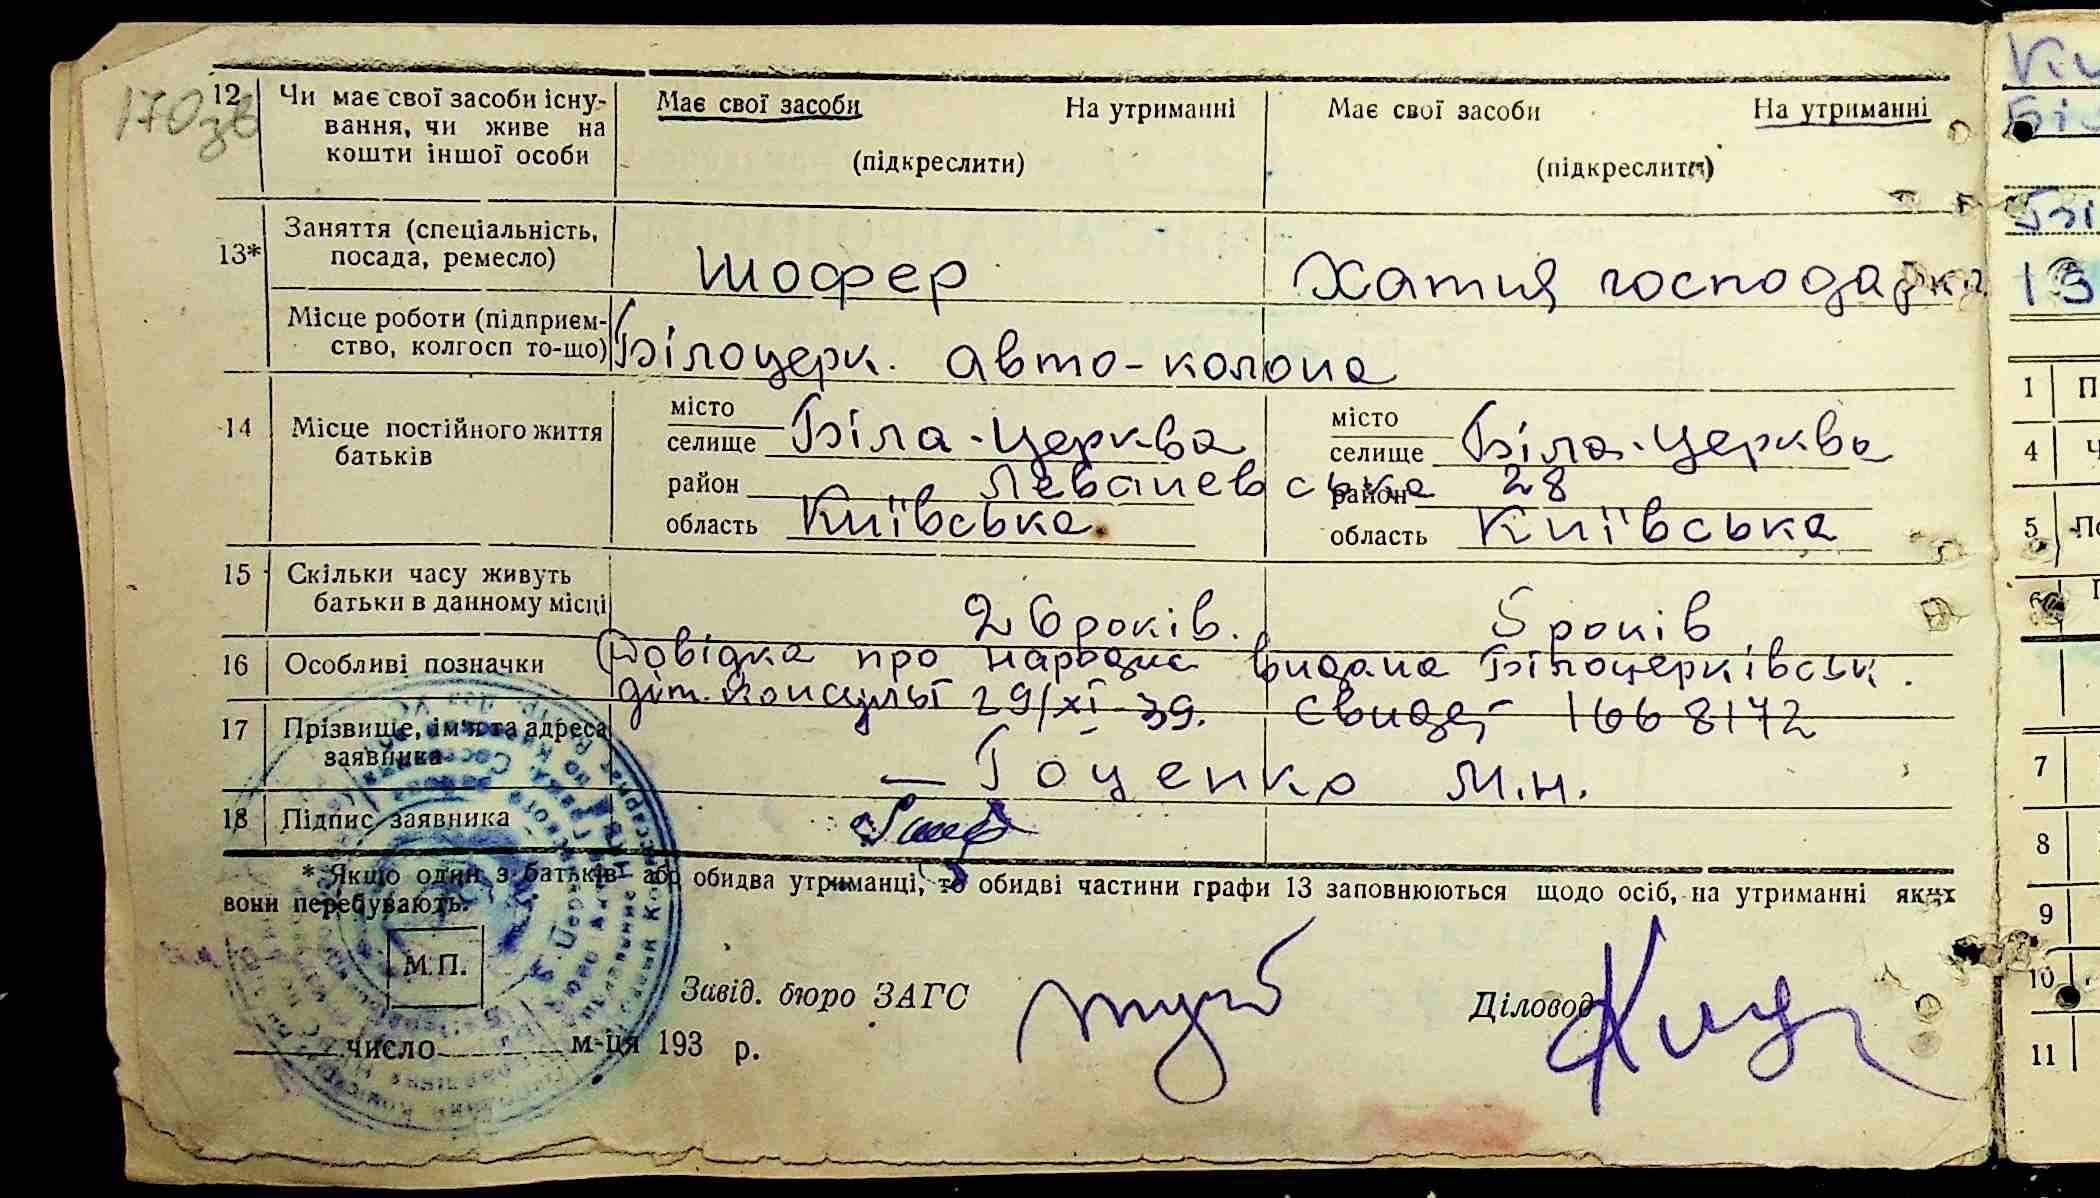 170 зв
12 Чи має свої засоби існу-
вання, чи живе на
кошти іншої особи
Має свої засоби На утриманні
(підкреслити)
Має свої засоби На утриманні
(підкреслити)
13* Заняття (спеціальність,
посада, ремесло)
шофер
Хатня господарка
Місце роботи (підприєм-
ство, колгосп то-що)
Білоцерк. авто-колона
14 Місце постійного життя
батьків
місто
селище Біла-Церква
район Леваневська 28
область Київська
місто
селище Біла-Церква
район
область Київська
15 Скільки часу живуть
батьки в данному місці
26 років.
5 років
16 Особливі позначки
Довідка про народж видана Білоцерківськ.
дит. консульт 29/XI-39. Свидет 1668172
17 Прізвище, ім'я та адреса
заявника
— Гоценко М.Н.
18 Підпис заявника
* Якщо один з батьків або обидва утриманці, то обидві частини графи 13 заповнюються щодо осіб, на утриманні яких
вони перебувають.
М.П.
Завід. бюро ЗАГС
Діловод
число м-ця 193 р.
1 П
4 Ч
5 По
6
7
8
9
10
11